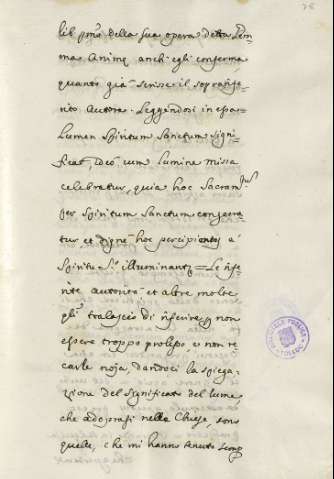 lib. pmo della sua opera detta Gem
ma Animę, anch'egli conferma
quanto già scrisse il soprañfe
rito Autore. Leggendosi in essa =
Lumen Spiritum Sanctum signi
ficat, ideò cum lumine missa
celebratur, quia hoc Sacram.tum
per Spiritum Sanctum consecra
tur, et dignè hoc percipientes à
Spiritu S.to illuminantur = Le
autorità et altre molte
gli tralascio di inferire p non
essere troppo prolisso, e non re
carle noja, dandoci la spiega
zione del significato del lume
che adoprasi nelle Chiese sono
quelle, che mi hanno
BIBLIOTECA PUBLICA
TOLEDO